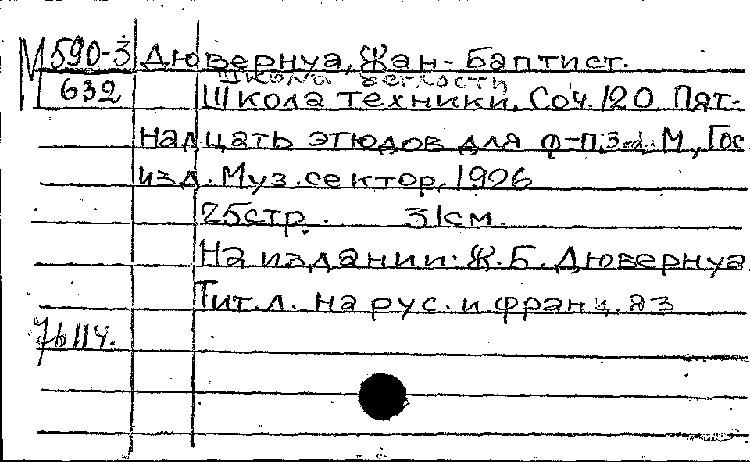 М 590-3 Дювернуа, Жан-Баптист.
Школа беглости
632 Школа техники. Соч. 120 Пят-
надцать этюдов для ф-п. М, Гос
изд. Муз. сектор, 1926
25стр. 31см.
На издании: Ж.Б. Дювернуа
Тит. л. на рус. и франц. яз
76114.